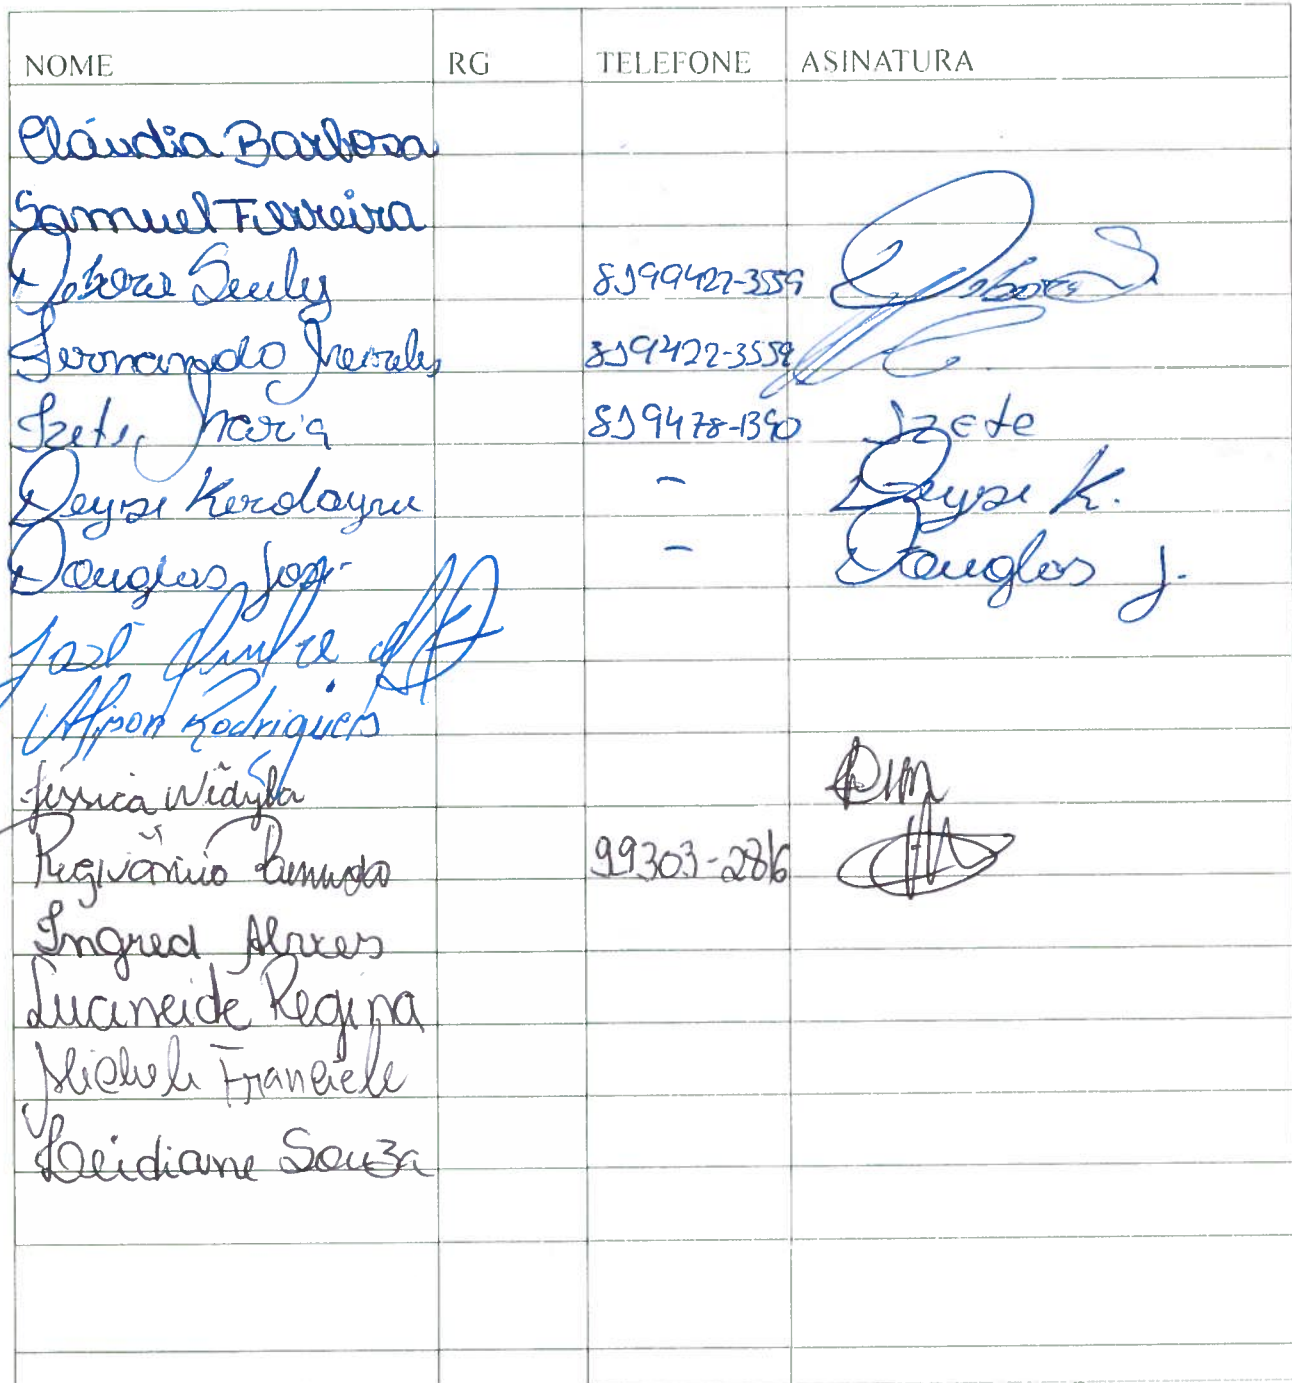 NOME RG TELEFONE ASINATURA
Cláudia Barbosa
Samuel Ferreira
Debora Suely 8199422-3559 Debora S.
Fernando 819422-3559
Izete Maria 819478-1390 Izete
Deyse Kerolayne - Deyse K.
Douglas José - Douglas J.
José
Rodrigues
Jéssica Widyla
Regivânio 99303-2816
Ingred Alves
Lucineide Regina
Micheli Franciele
Leidiane Souza